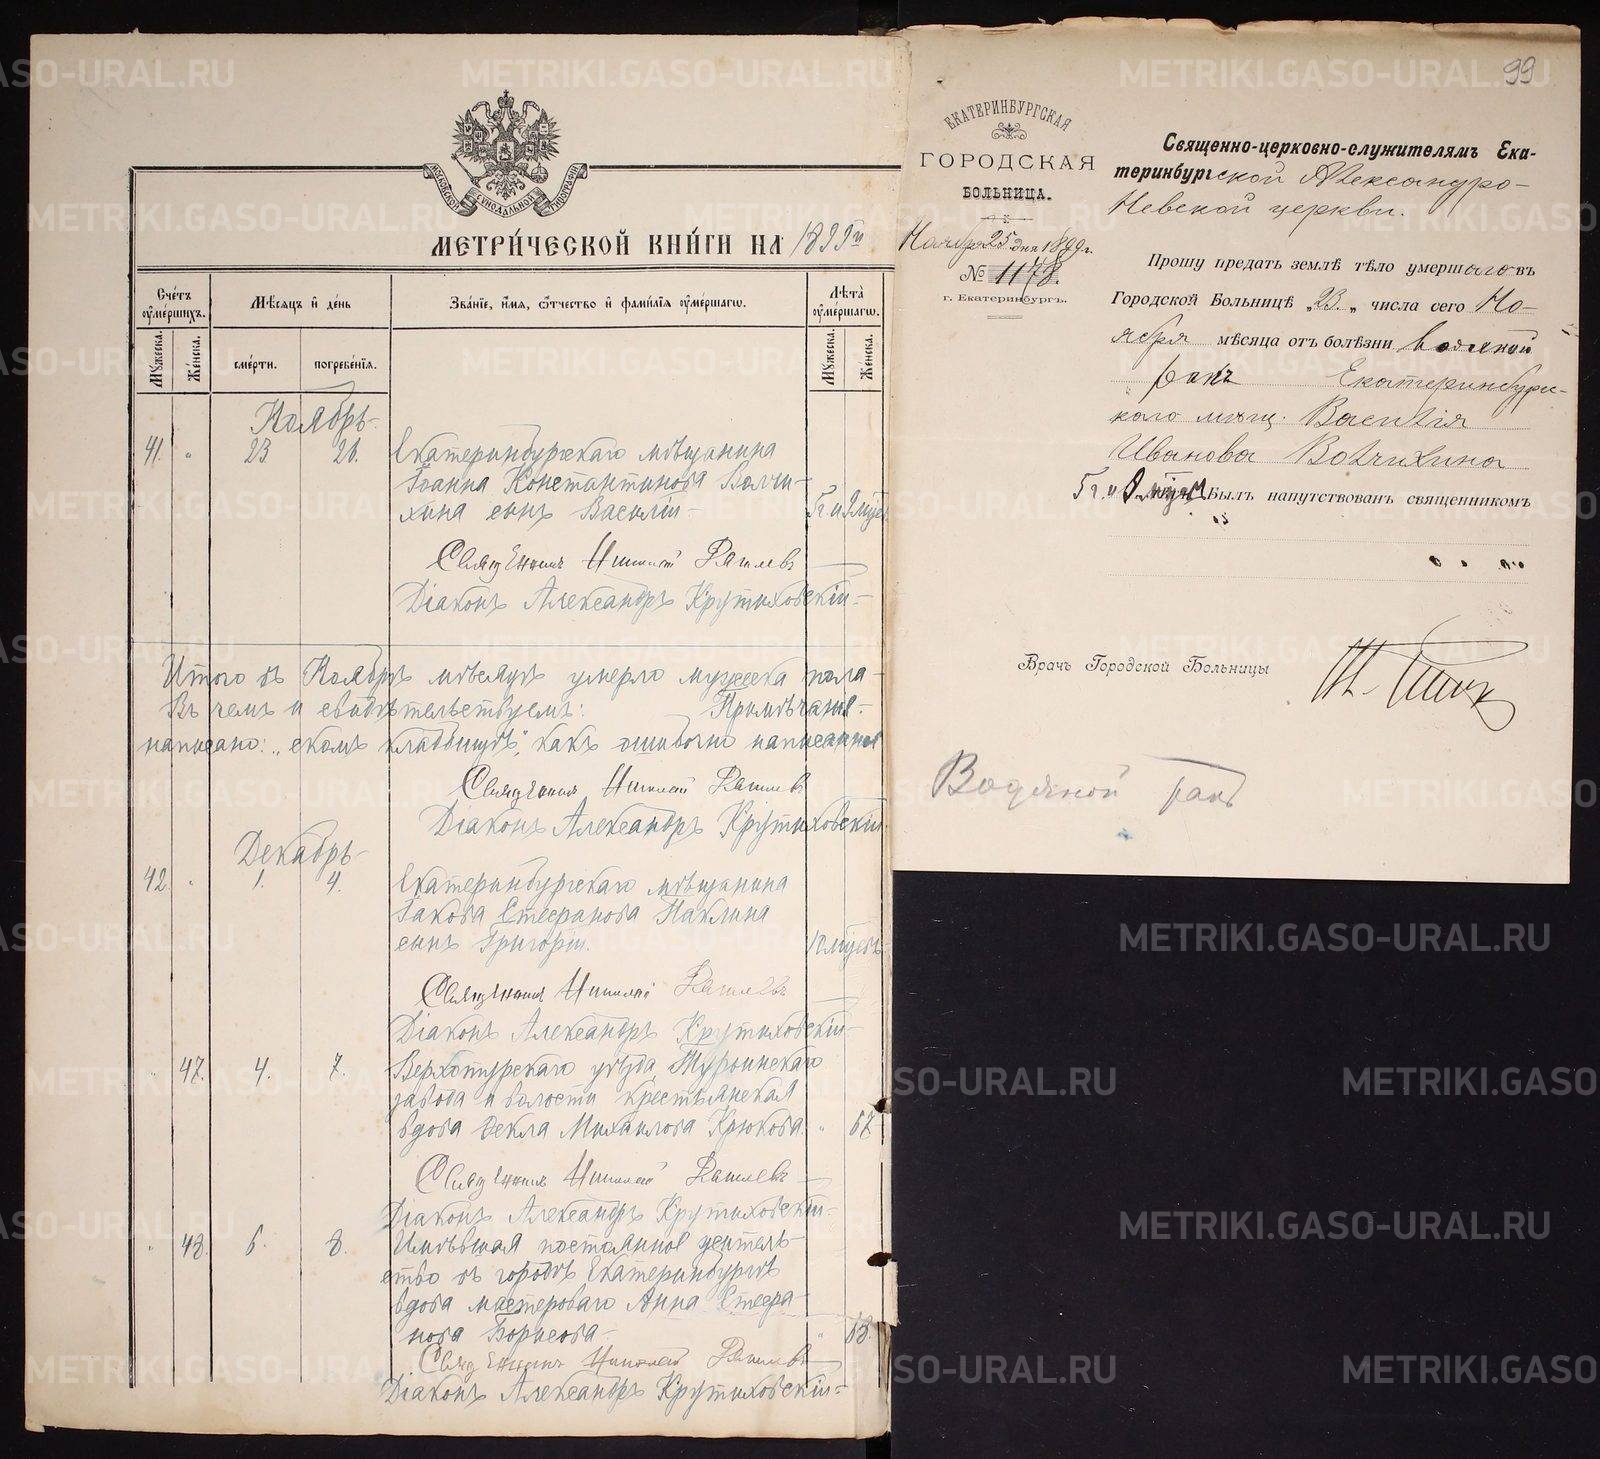 МОСКОВСКОЙ СѴНОДАЛЬНОЙ ТИПОГРАФІИ
МЕТРИЧЕСКОЙ КНИГИ НА 1899 й
Счетъ оумершихъ.
Мѣсяцъ и день
Званіе, имя, отчество и фамилія оумершагѡ.
Лѣта оумершагѡ.
Мужеска.
Женска.
смерти.
погребенія.
Мужеска.
Женска.
Ноябрь
41. " 23 26. Екатеринбургскаго мѣщанина
Іоанна Константинова Волчи-
хина сынъ Василій
Священникъ Николай
Діаконъ Александръ Крутиховскій
Итого въ Ноябрѣ мѣсяцѣ умерло мужеска пола
Въ чемъ и свидѣтельствуемъ: Примѣчаніе.
написано: „скомъ кладбищѣ", какъ ошибочно написанное
Священникъ Николай
Діаконъ Александръ Крутиховскій
Декабрь
42. " 1. 4. Екатеринбургскаго мѣщанина
Іакова Стефанова Паклина
сынъ Григорій.
Священникъ Николай
Діаконъ Александръ Крутиховскій
" 47. 4. 7. Верхотурскаго уѣзда Турьинскаго
завода и волости крестьянская
вдова Ѳекла Михайлова Крюкова. " 67
Священникъ Николай
Діаконъ Александръ Крутиховскій
" 48. 6. 8. Имѣвшая постоянное житель-
ство въ городѣ Екатеринбургѣ
вдова мастероваго Анна Стефа-
нова Борисова "
Священникъ Николай
Діаконъ Александръ Крутиховскій
99
ЕКАТЕРИНБУРГСКАЯ
ГОРОДСКАЯ
БОЛЬНИЦА.
Ноября 25 дня 1899 г.
№ 1178.
г. Екатеринбургъ.
Священно-церковно-служителямъ Ека-
теринбургской Александро-
Невской церкви.
Прошу предать землѣ тѣло умершаго въ
Городской Больницѣ „23„ числа сего Но-
ября мѣсяца отъ болѣзни водяной
ракъ Екатеринбург-
скаго мѣщ. Василія
Иванова Волчихина
Былъ напутствованъ священникомъ
Врачъ Городской Больницы
Водяной ракъ
METRIKI.GASO-URAL.RU